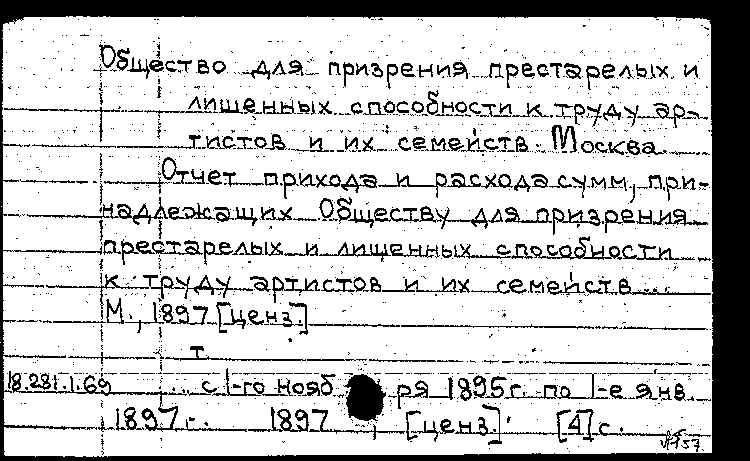 Общество для призрения престарелых и
лишенных способности к труду ар-
тистов и их семейств. Москва.
Отчет прихода и расхода сумм, при-
надлежащих Обществу для призрения
престарелых и лишенных способности
к труду артистов и их семейств...
М., 1897 [ценз.]
т.
18.281.1.69 ... с 1-го нояб ря 1895 г. по 1-е янв.
1897 г. 1897, [ценз.]. [4] с.